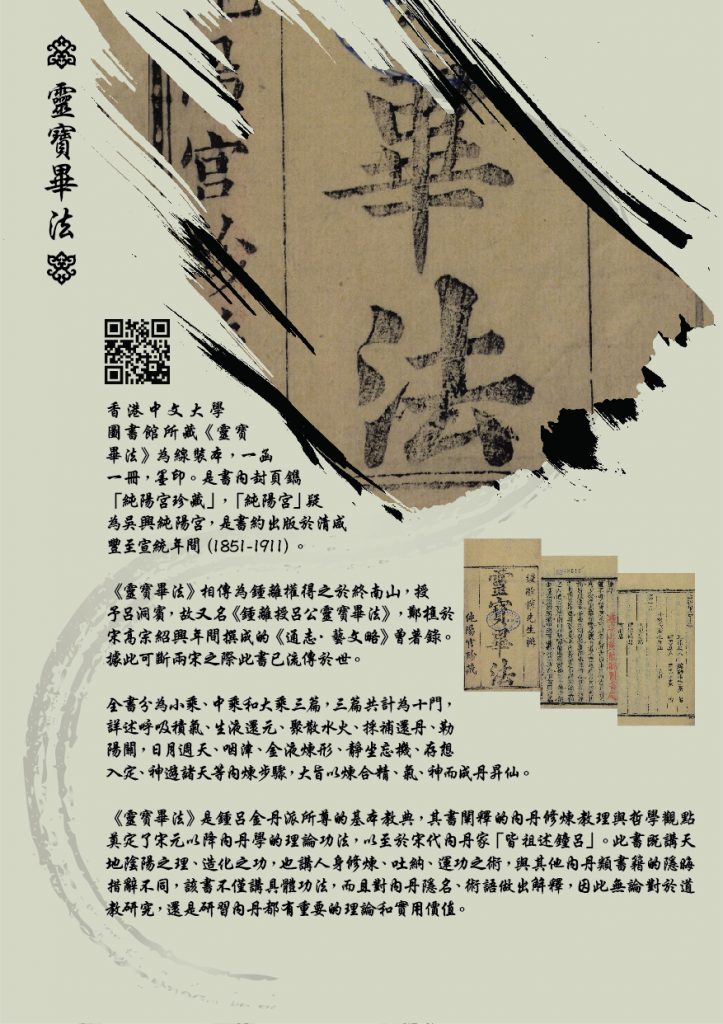 靈寶畢法
宮
畢法
香港中文大學
圖書館所藏《靈寶
畢法》為線裝本，一函
一冊，墨印。是書內封頁鐫
「純陽宮珍藏」，「純陽宮」疑
為吳興純陽宮，是書約出版於清咸
豐至宣統年間 (1851-1911) 。
《靈寶畢法》相傳為鍾離權得之於終南山，授
予呂洞賓，故又名《鍾離授呂公靈寶畢法》，鄭樵於
宋高宗紹興年間撰成的《通志·藝文略》曾著錄。
據此可斷兩宋之際此書已流傳於世。
全書分為小乘、中乘和大乘三篇，三篇共計為十門，
詳述呼吸積氣、生液還元、聚散水火、採補還丹、勒
陽關，日月週天、咽津、金液煉形、靜坐忘機、存想
入定、神遊諸天等內煉步驟，大旨以煉合精、氣、神而成丹昇仙。
《靈寶畢法》是鍾呂金丹派所尊的基本教典，其書闡釋的內丹修煉教理與哲學觀點
奠定了宋元以降內丹學的理論功法，以至於宋代內丹家「皆祖述鐘呂」。此書既講天
地陰陽之理、造化之功，也講人身修煉、吐納、運功之術，與其他內丹類書籍的隱晦
措辭不同，該書不僅講具體功法，而且對內丹隱名、術語做出解釋，因此無論對於道
教研究，還是研習內丹都有重要的理論和實用價值。
靈寶畢法
純陽宮珍藏